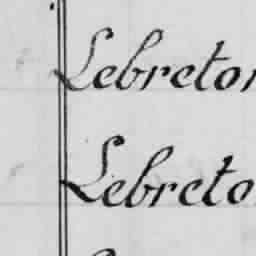 Lebreton
Lebreto